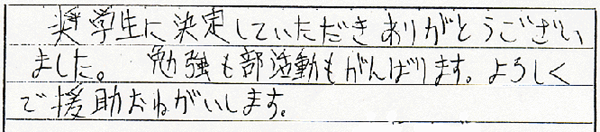 奨学生に決定していただきありがとうござい
ました。 勉強も部活動もがんばります。よろしく
で援助おねがいします。